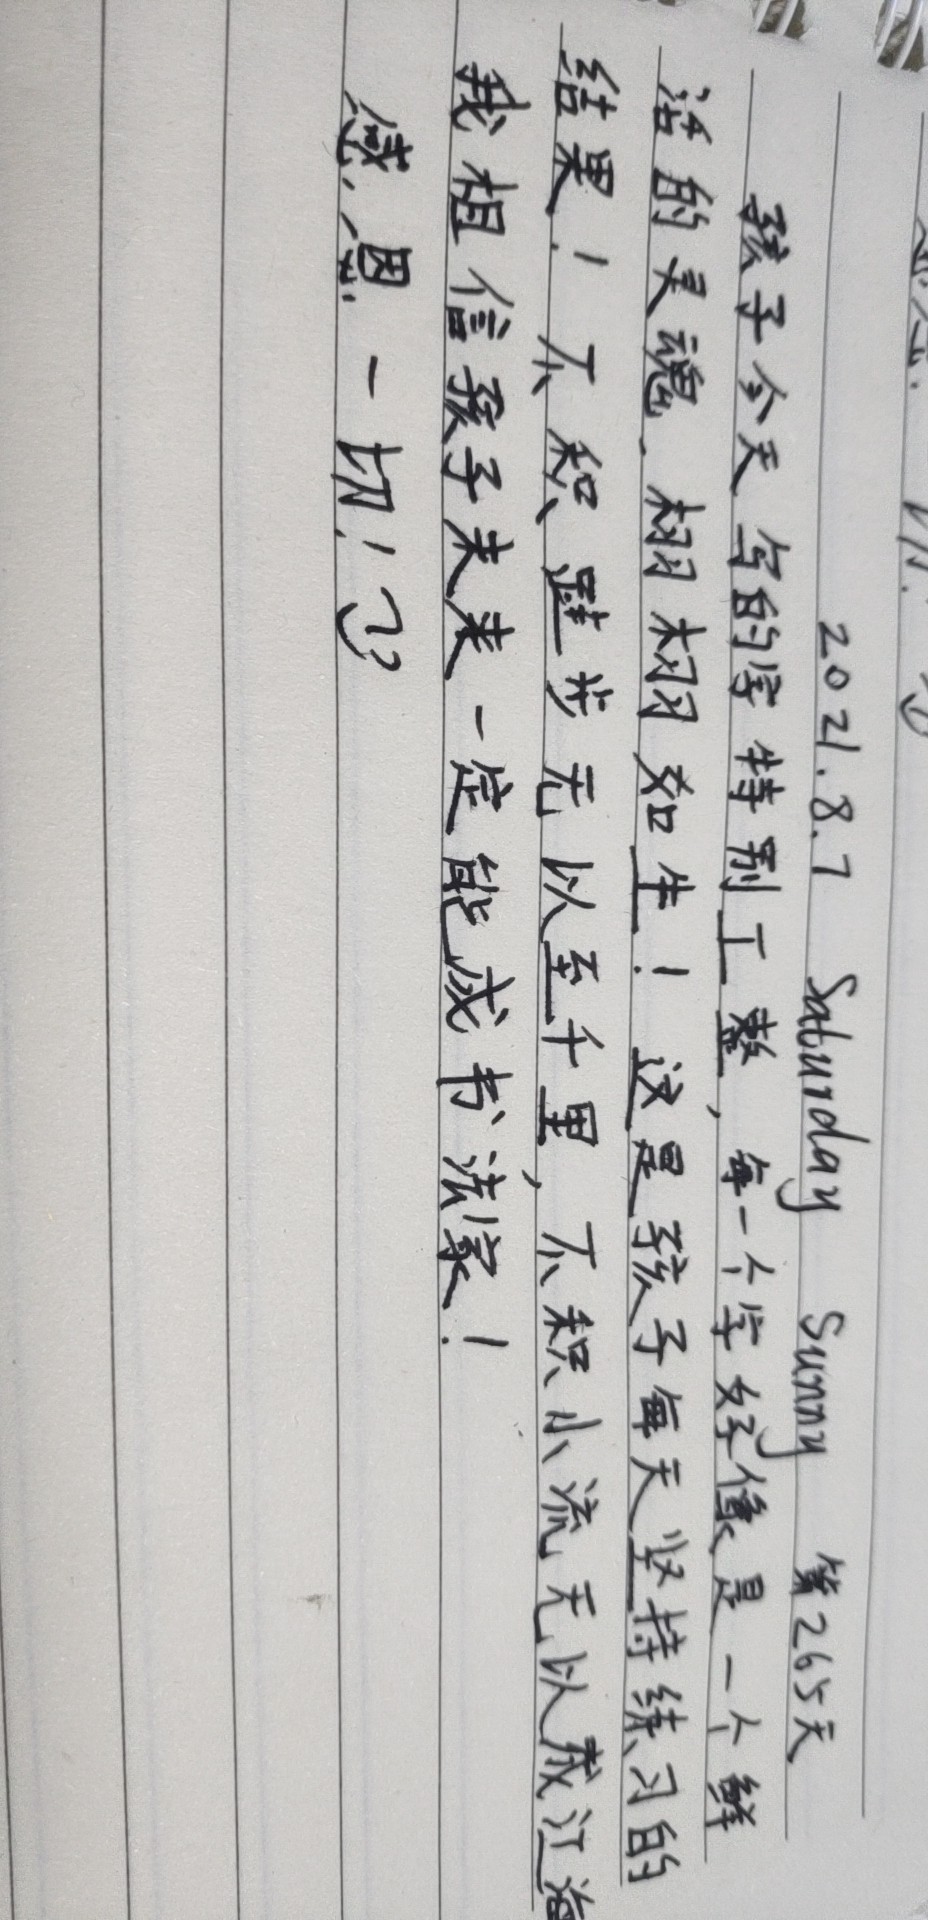 2021.8.7 Saturday Sunny 第265天
孩子今天写的字特别工整,每一个字好像是一个鲜
活的灵魂,栩栩如生!这是孩子每天坚持练习的
结果!不积跬步无以至千里,不积小流无以成江海
我相信孩子未来一定能成书法家!
感恩一切!